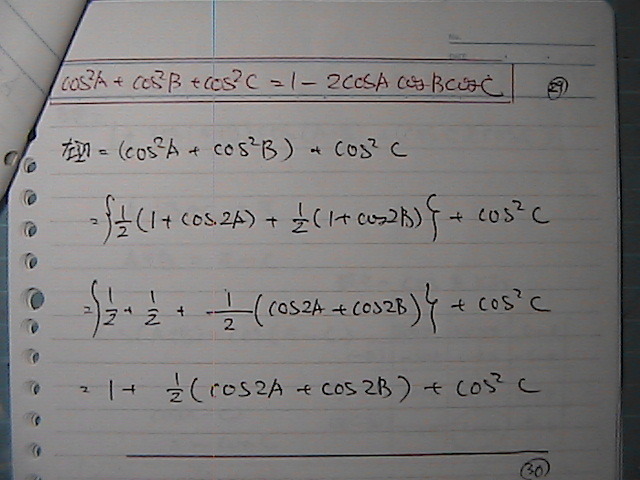 No.
DATE
cos²A + cos²B + cos²C = 1 - 2cosA cosBcosC
㉙
左辺 = (cos²A + cos²B) + cos² C
= {1/2(1 + cos2A) + 1/2(1 + cos2B)} + cos² C
= {1/2 + 1/2 + 1/2(cos2A + cos2B)} + cos² C
= 1 + 1/2(cos2A + cos2B) + cos² C
㉚